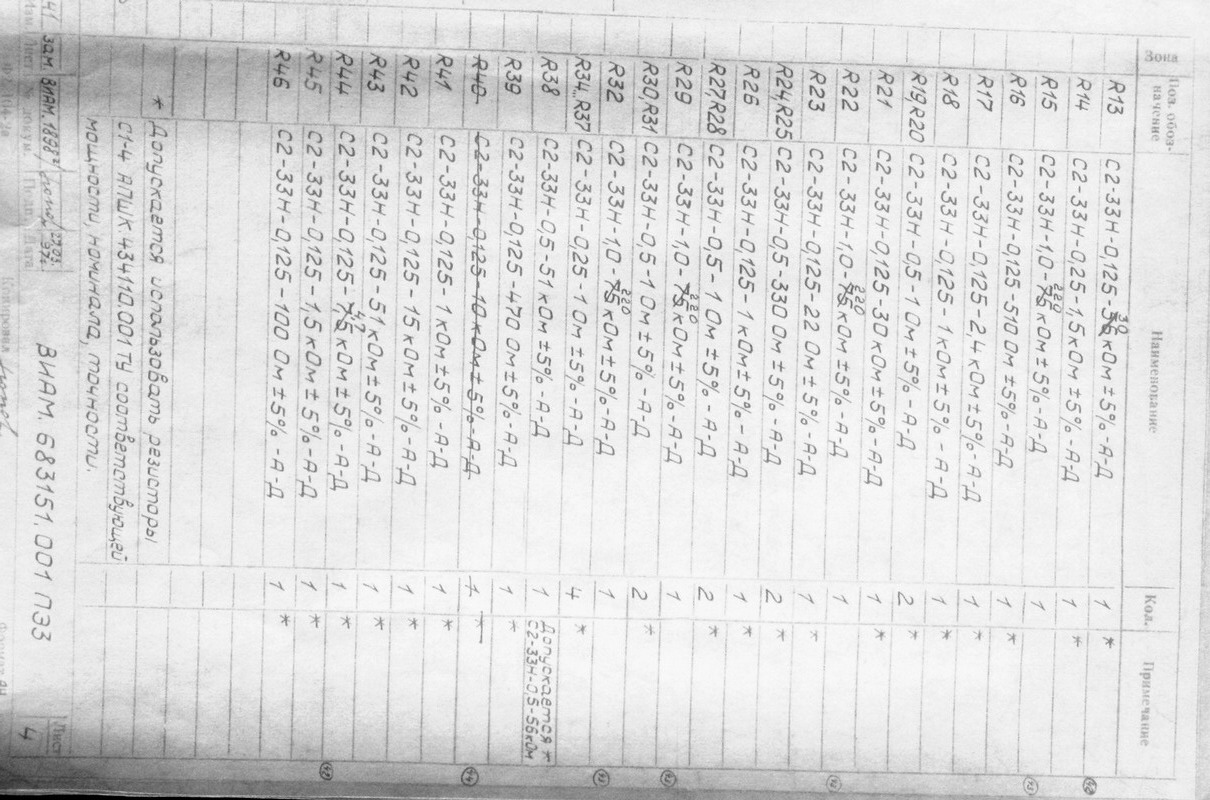 Зона Поз. обоз- начение Наименование Кол. Примечание
R13 С2-33Н-0,125-36 30 кОм±5%-А-Д 1 *
R14 С2-33Н-0,25-1,5кОм±5%-А-Д 1 *
R15 С2-33Н-1,0-75 220 кОм±5%-А-Д 1
R16 С2-33Н-0,125-510 Ом±5%-А-Д 1 *
R17 С2-33Н-0,125-2,4кОм±5%-А-Д 1 *
R18 С2-33Н-0,125-1кОм±5%-А-Д 1 *
R19,R20 С2-33Н-0,5-1 Ом±5%-А-Д 2 *
R21 С2-33Н-0,125-30кОм±5%-А-Д 1 *
R22 С2-33Н-1,0-75 220 кОм±5%-А-Д 1
R23 С2-33Н-0,125-22 Ом±5%-А-Д 1 *
R24,R25 С2-33Н-0,5-330 Ом±5%-А-Д 2 *
R26 С2-33Н-0,125-1кОм±5%-А-Д 1 *
R27,R28 С2-33Н-0,5-1 Ом±5%-А-Д 2 *
R29 С2-33Н-1,0-75 220 кОм±5%-А-Д 1
R30,R31 С2-33Н-0,5-1 Ом±5%-А-Д 2 *
R32 С2-33Н-1,0-75 220 кОм±5%-А-Д 1
R34...R37 С2-33Н-0,25-1 Ом±5%-А-Д 4 *
R38 С2-33Н-0,5-51кОм±5%-А-Д 1 Допускается *
С2-33Н-0,5-56кОм
R39 С2-33Н-0,125-470 Ом±5%-А-Д 1 *
R40 С2-33Н-0,125-10кОм±5%-А-Д 1 *
R41 С2-33Н-0,125-1кОм±5%-А-Д 1 *
R42 С2-33Н-0,125-15кОм±5%-А-Д 1 *
R43 С2-33Н-0,125-51кОм±5%-А-Д 1 *
R44 С2-33Н-0,125-7,5 4,7 кОм±5%-А-Д 1 *
R45 С2-33Н-0,125-1,5кОм±5%-А-Д 1 *
R46 С2-33Н-0,125-100 Ом±5%-А-Д 1 *
* Допускается использовать резисторы
С1-4 АПШК 434110.001 ТУ соответствующей
мощности, номинала, точности.
зам ВИАМ.1898
ВИАМ.683151.001 ПЭ3
Лист
4